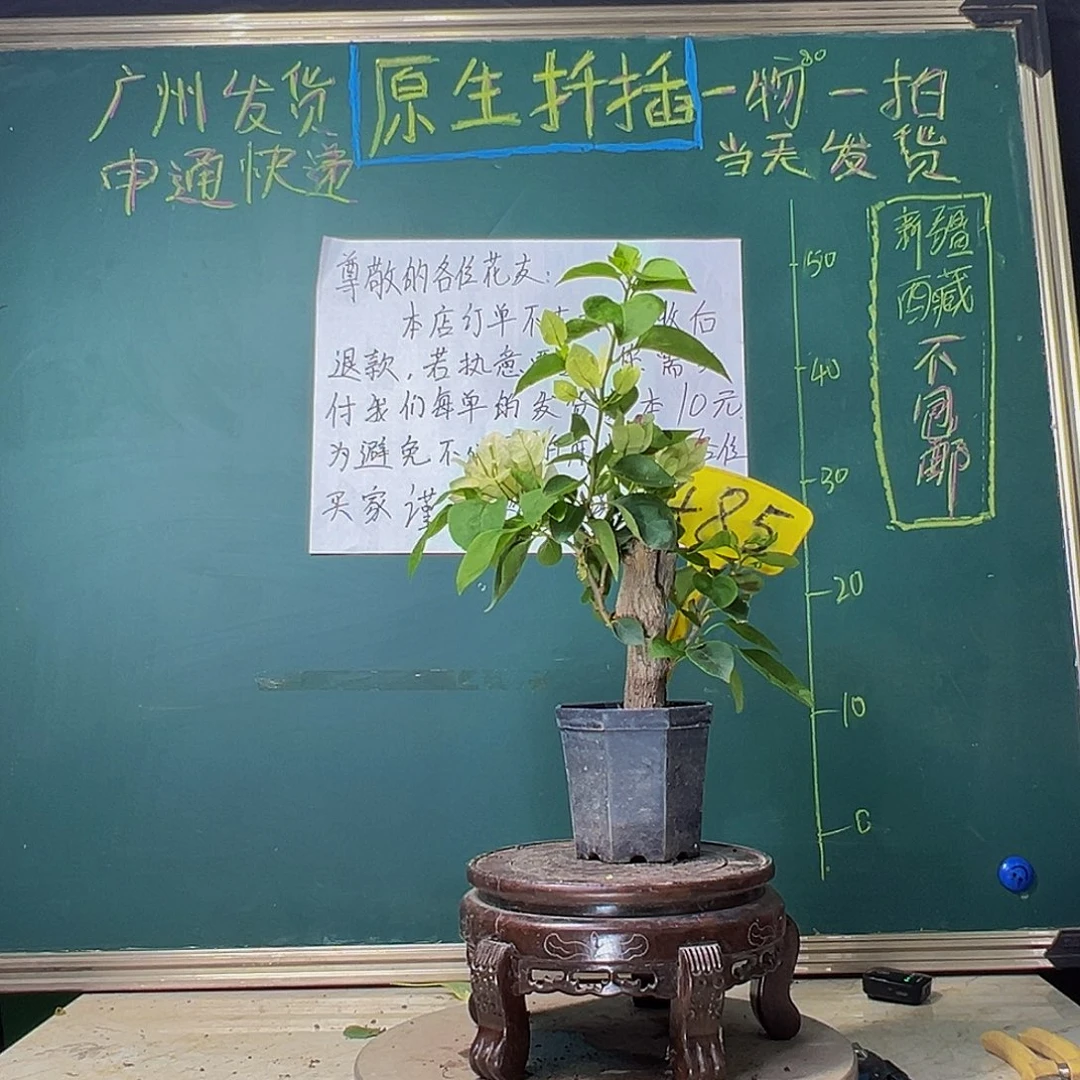 广州发货
申通快递
原生扦插
一物一拍
80
当天发货
新疆
西藏
不
包
邮
50
40
30
20
10
0
尊敬的各位花友:
本店订单不 收后
退款,若执意 需
付我们每单的发货 本10元
为避免不 各位
买家谨
485